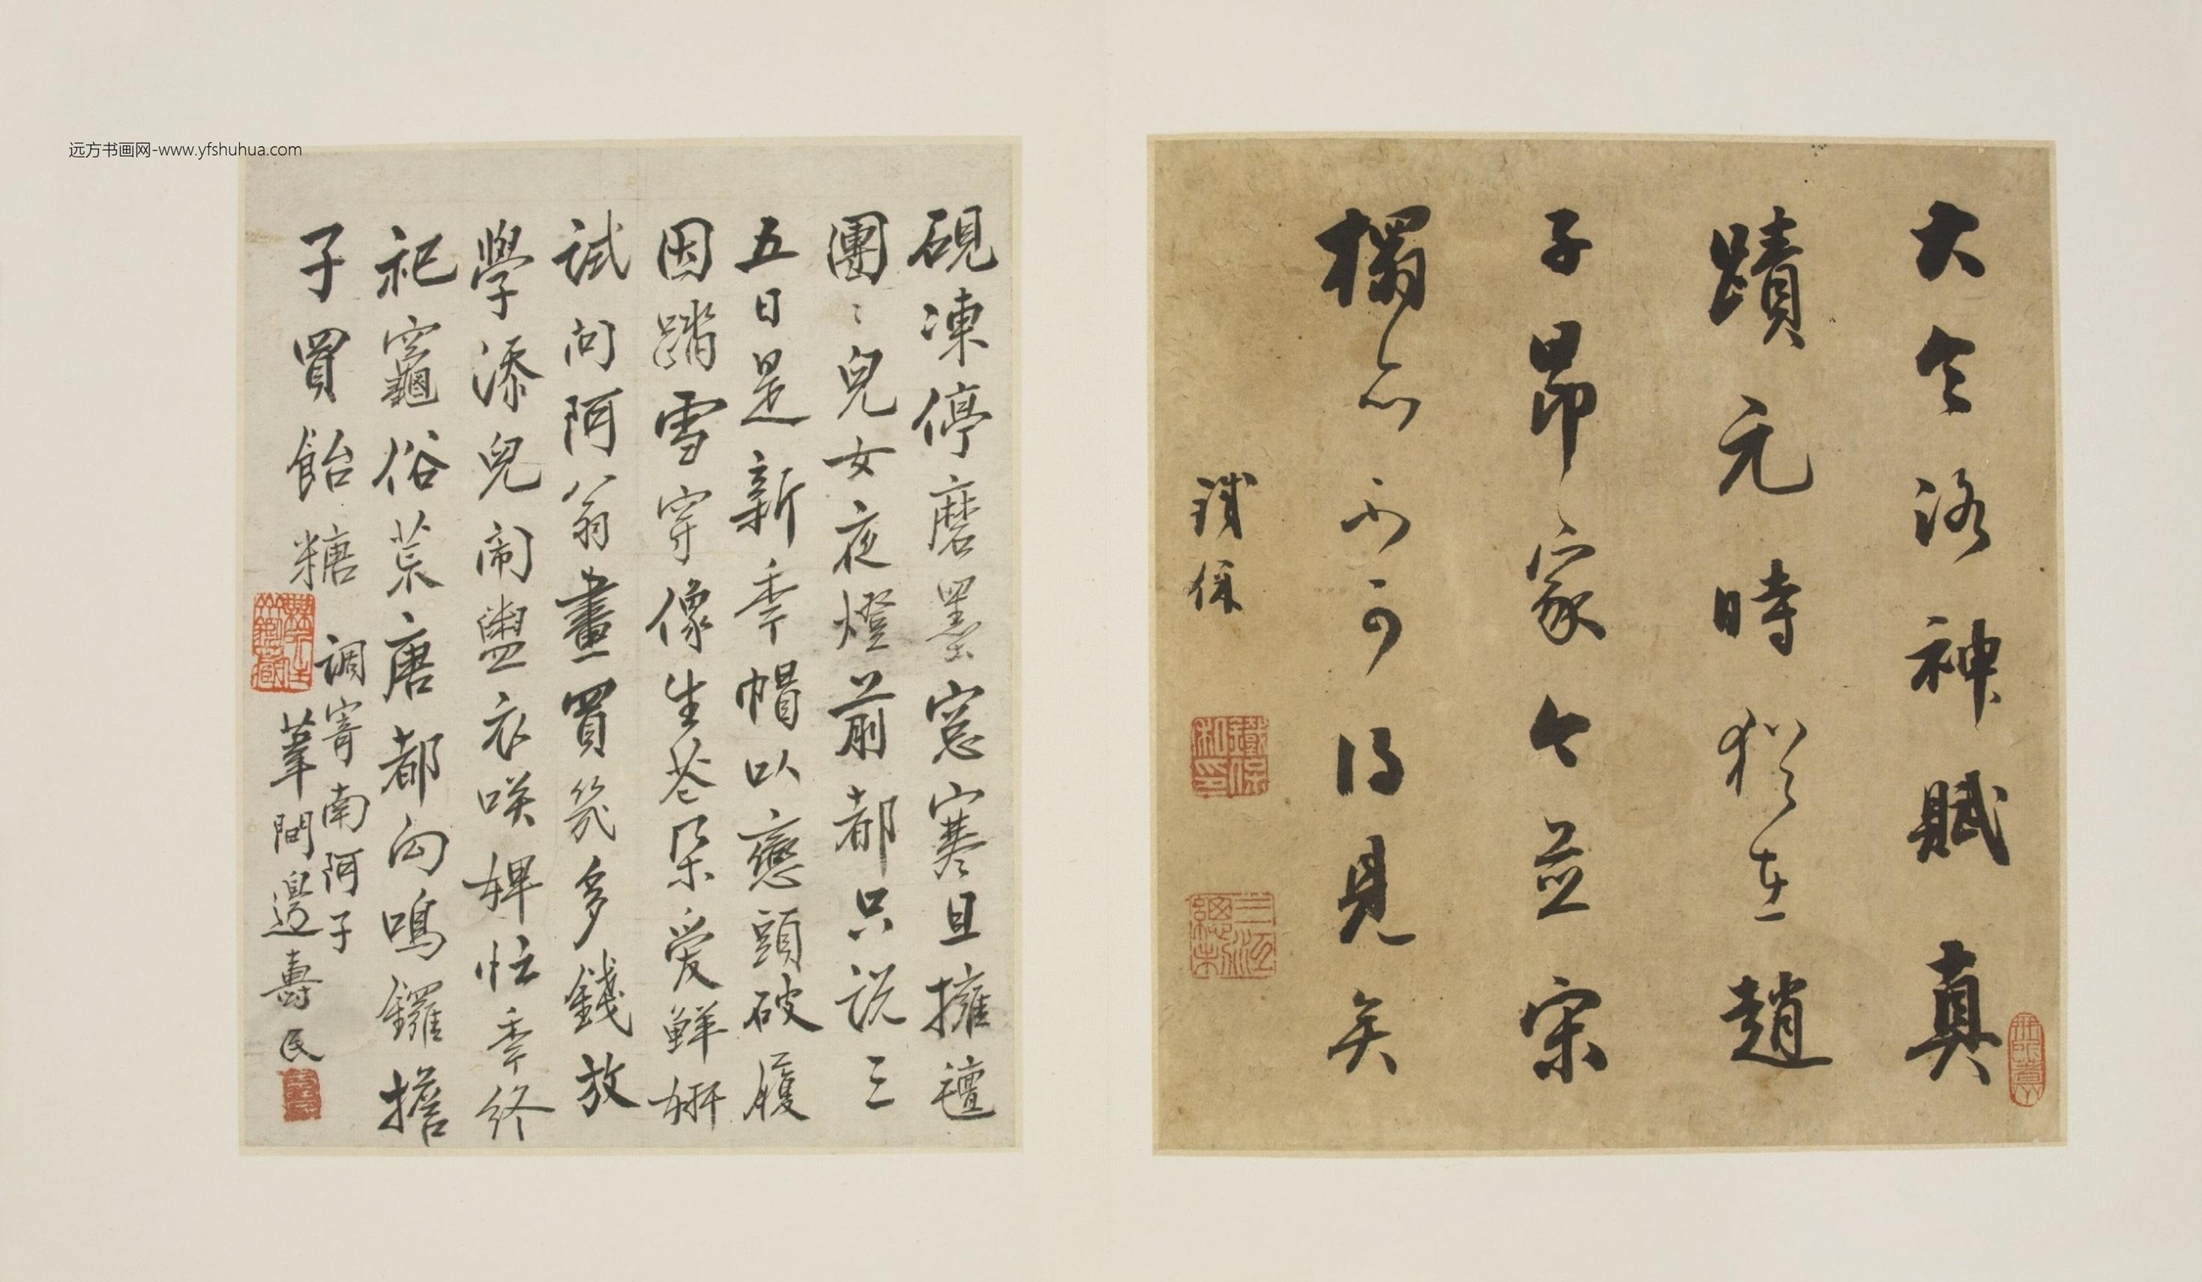 大令洛神賦真
蹟元時猶在趙
子昂家今並宋
搨亦不可得見矣
鐵保
硯凍停磨墨窓寒且擁氊
團〻兒女夜燈前都只説三
五日是新季帽以戀頭破履
因踏雪穿像生花朵愛鮮妍
試問阿翁畫買幾多錢放
學添兒鬧盥衣咲婢忙季終
祀竈俗荒唐都向鳴鑼擔
子買飴糖
調寄南阿子
葦間邊壽民
远方书画网-www.yfshuhua.com